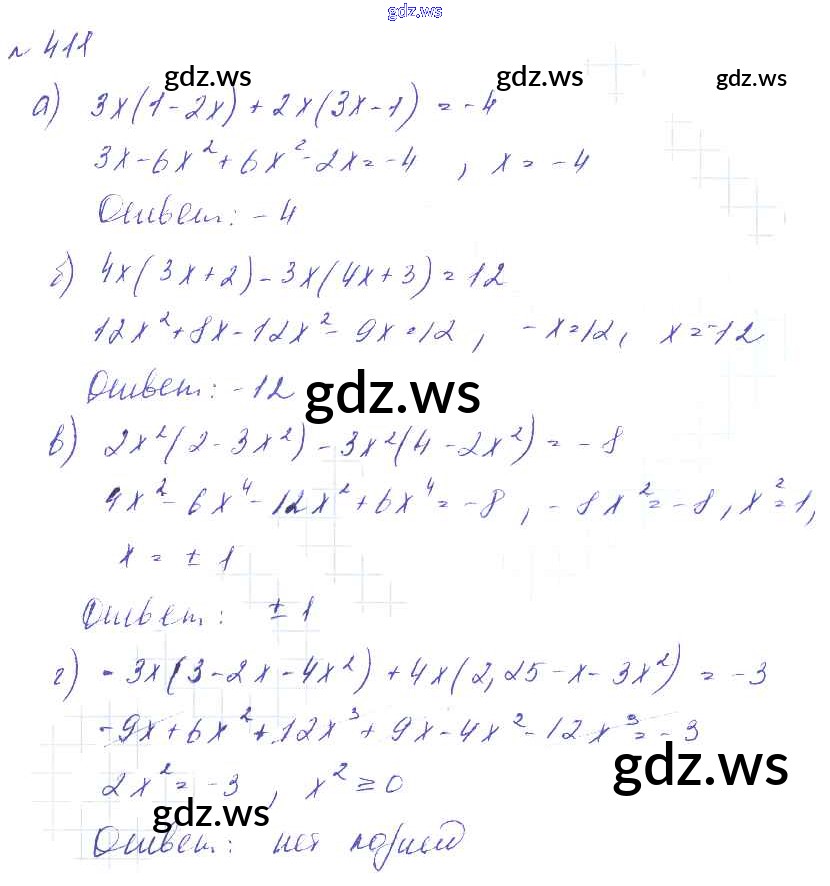 gdz.ws
№ 411
gdz.ws gdz.ws gdz.ws
а) 3x(1-2x)+2x(3x-1)=-4
3x-6x²+6x²-2x=-4 , x=-4
Ответ: -4
б) 4x(3x+2)-3x(4x+3)=12
12x²+8x-12x²-9x=12 , -x=12, x=-12
Ответ: -12
gdz.ws
в) 2x²(2-3x²)-3x²(4-2x²)=-8
4x²-6x⁴-12x²+6x⁴=-8 , -8x²=-8, x²=1,
x=±1
Ответ: ±1
г) -3x(3-2x-4x²)+4x(2,25-x-3x²)=-3
-9x+6x²+12x³+9x-4x²-12x³=-3
gdz.ws
2x²=-3 , x²≥0
gdz.ws
Ответ: нет корней